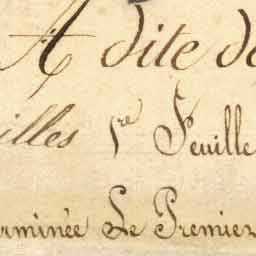 A dite de
illes 1re Feuille
erminée Le Premier